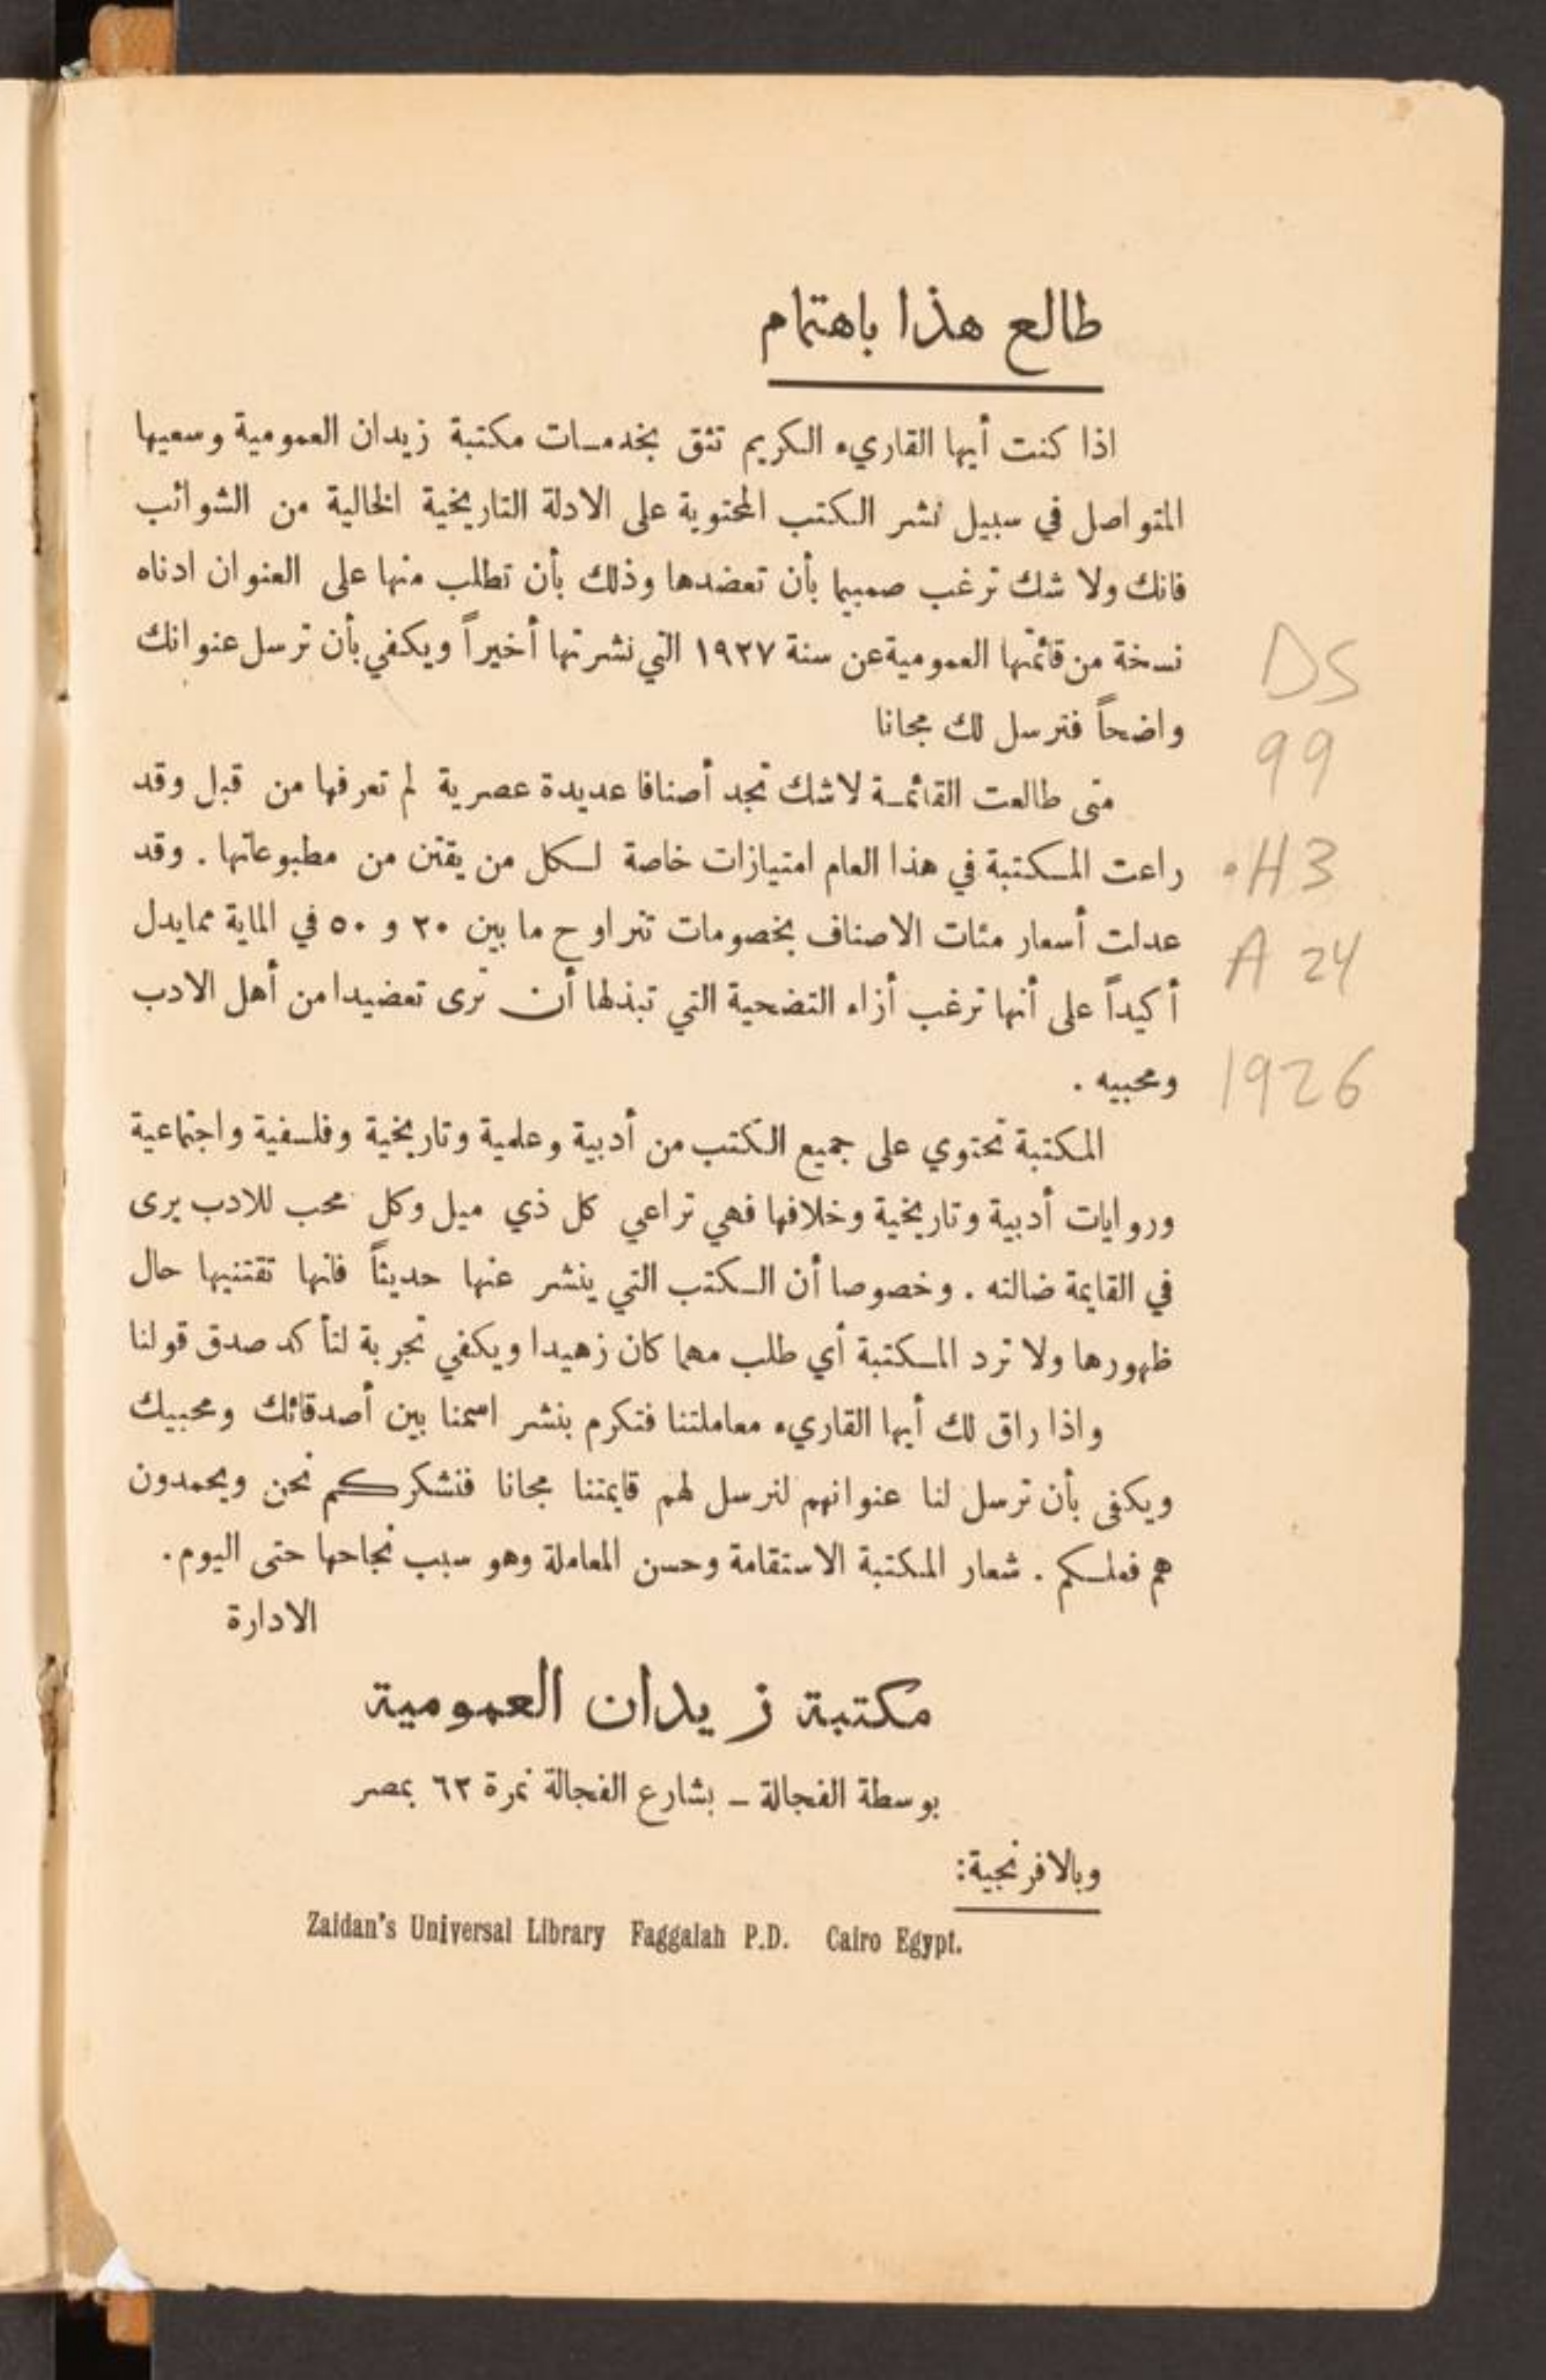 طالع هذا باهتمام
اذا كنت أيها القاريء الكريم تثق بخدمات مكتبة زيدان العمومية وسعيها
المتواصل في سبيل نشر الكتب المحتوية على الادلة التاريخية الخالية من الشوائب
فانك ولا شك ترغب صميما بأن تعضدها وذلك بأن تطلب منها على العنوان ادناه
نسخة من قائمتها العمومية عن سنة ١٩٢٧ التي نشرتها أخيراً ويكفي بأن ترسل عنوانك
واضحاً فترسل لك مجانا
متى طالعت القائمة لاشك تجد أصنافا عديدة عصرية لم تعرفها من قبل وقد
راعت المكتبة في هذا العام امتيازات خاصة لكل من يقتن من مطبوعاتها . وقد
عدلت أسعار مئات الاصناف بخصومات تتراوح ما بين ٢٠ و ٥٠ في الماية مما يدل
أكيداً على أنها ترغب أزاء التضحية التي تبذلها أن ترى تعضيدا من أهل الادب
ومحبيه .
المكتبة تحتوي على جميع الكتب من أدبية وعلمية وتاريخية وفلسفية واجتماعية
وروايات أدبية وتاريخية وخلافها فهي تراعي كل ذي ميل وكل محب للادب يرى
في القايمة ضالته . وخصوصا أن الكتب التي ينشر عنها حديثاً فانها تقتنيها حال
ظهورها ولا ترد المكتبة أي طلب مهما كان زهيدا ويكفي تجربة لتأكد صدق قولنا
واذا راق لك أيها القاريء معاملتنا فتكرم بنشر اسمنا بين أصدقائك ومحبيك
ويكفى بأن ترسل لنا عنوانهم لنرسل لهم قايمتنا مجانا فنشكركم نحن ويحمدون
هم فعلكم . شعار المكتبة الاستقامة وحسن المعاملة وهو سبب نجاحها حتى اليوم .
الادارة
مكتبة زيدان العمومية
بوسطة الفجالة – بشارع الفجالة نمرة ٦٣ بمصر
وبالافرنجية:
Zaidan's Universal Library Faggalah P.D. Cairo Egypt.
DS
99
.H3
A 24
1926